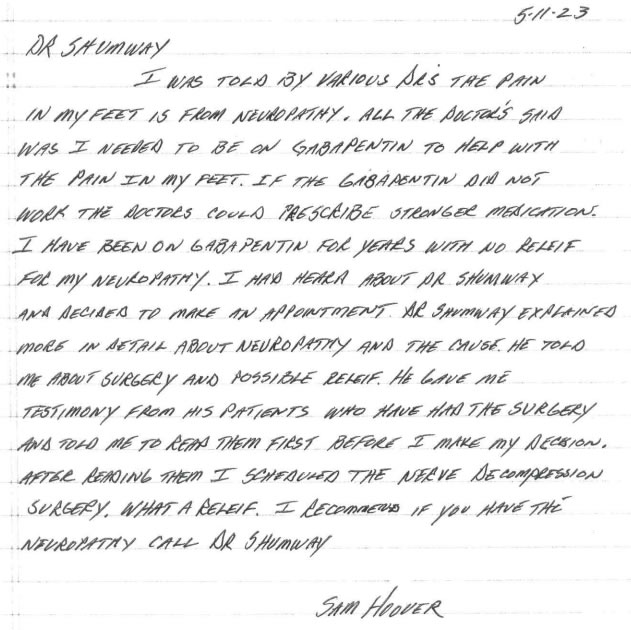 5-11-23
DR SHUMWAY
I WAS TOLD BY VARIOUS DR'S THE PAIN
IN MY FEET IS FROM NEUROPATHY. ALL THE DOCTOR'S SAID
WAS I NEEDED TO BE ON GABAPENTIN TO HELP WITH
THE PAIN IN MY FEET. IF THE GABAPENTIN DID NOT
WORK THE DOCTORS COULD PRESCRIBE STRONGER MEDICATION.
I HAVE BEEN ON GABAPENTIN FOR YEARS WITH NO RELEIF
FOR MY NEUROPATHY. I HAD HEARD ABOUT DR SHUMWAY
AND DECIDED TO MAKE AN APPOINTMENT. DR SHUMWAY EXPLAINED
MORE IN DETAIL ABOUT NEUROPATHY AND THE CAUSE. HE TOLD
ME ABOUT SURGERY AND POSSIBLE RELEIF. HE GAVE ME
TESTIMONY FROM HIS PATIENTS WHO HAVE HAD THE SURGERY
AND TOLD ME TO READ THEM FIRST BEFORE I MAKE MY DECISION.
AFTER READING THEM I SCHEDULED THE NERVE DECOMPRESSION
SURGERY. WHAT A RELEIF. I RECOMMEND IF YOU HAVE THE
NEUROPATHY CALL DR SHUMWAY
SAM HOOVER